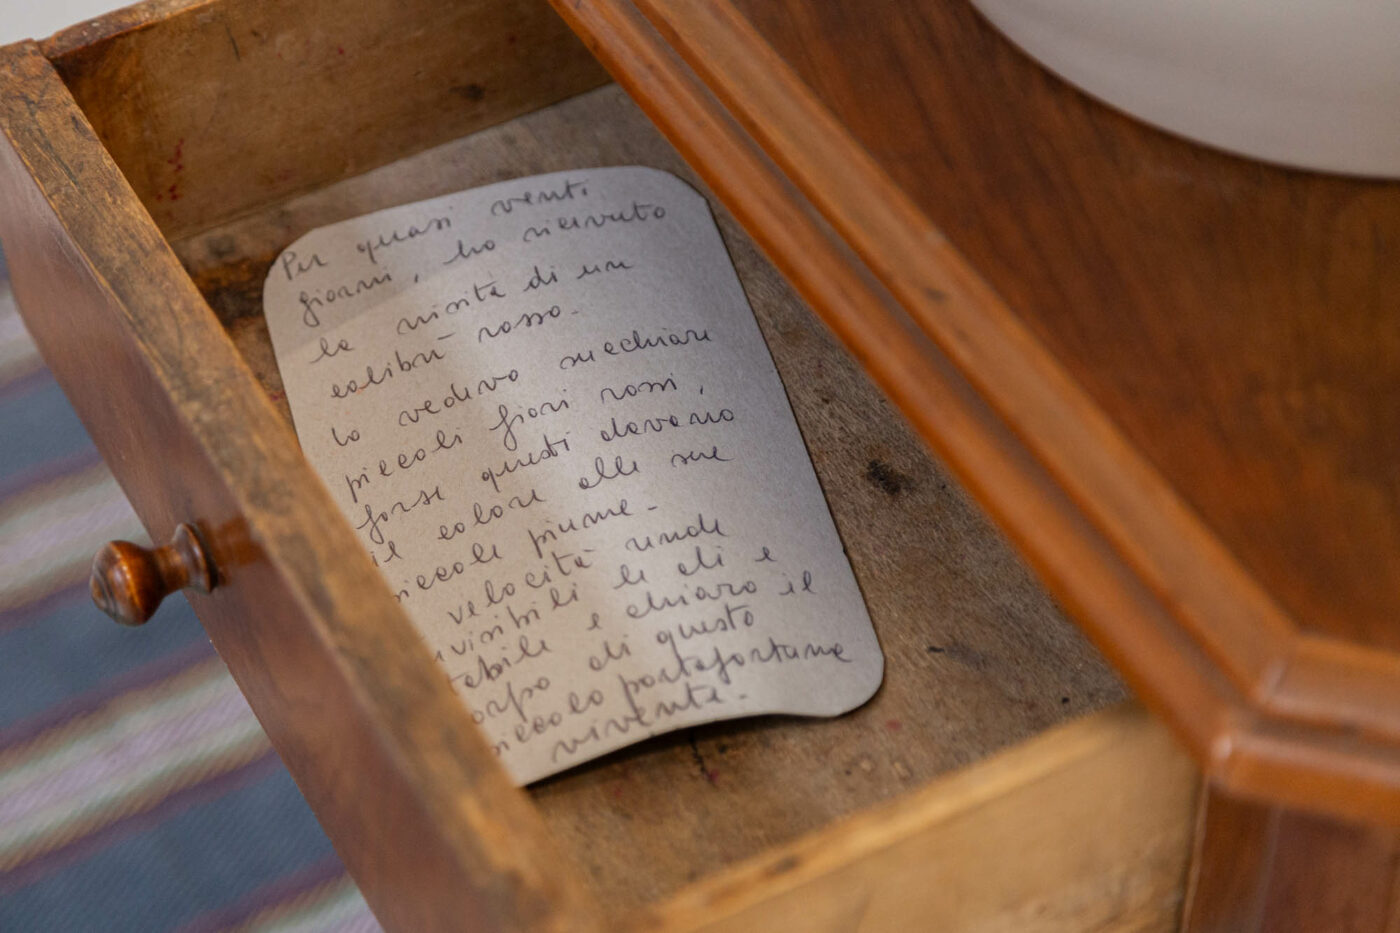 Per quasi venti
giorni, ho ricevuto
la visita di un
colibrì rosso.
lo vedevo succhiare
piccoli fiori rossi,
forse questi davano
il colore alle sue
piccole piume.
velocità rende
invisibili le ali e
e chiaro il
corpo di questo
piccolo portafortuna
vivente.